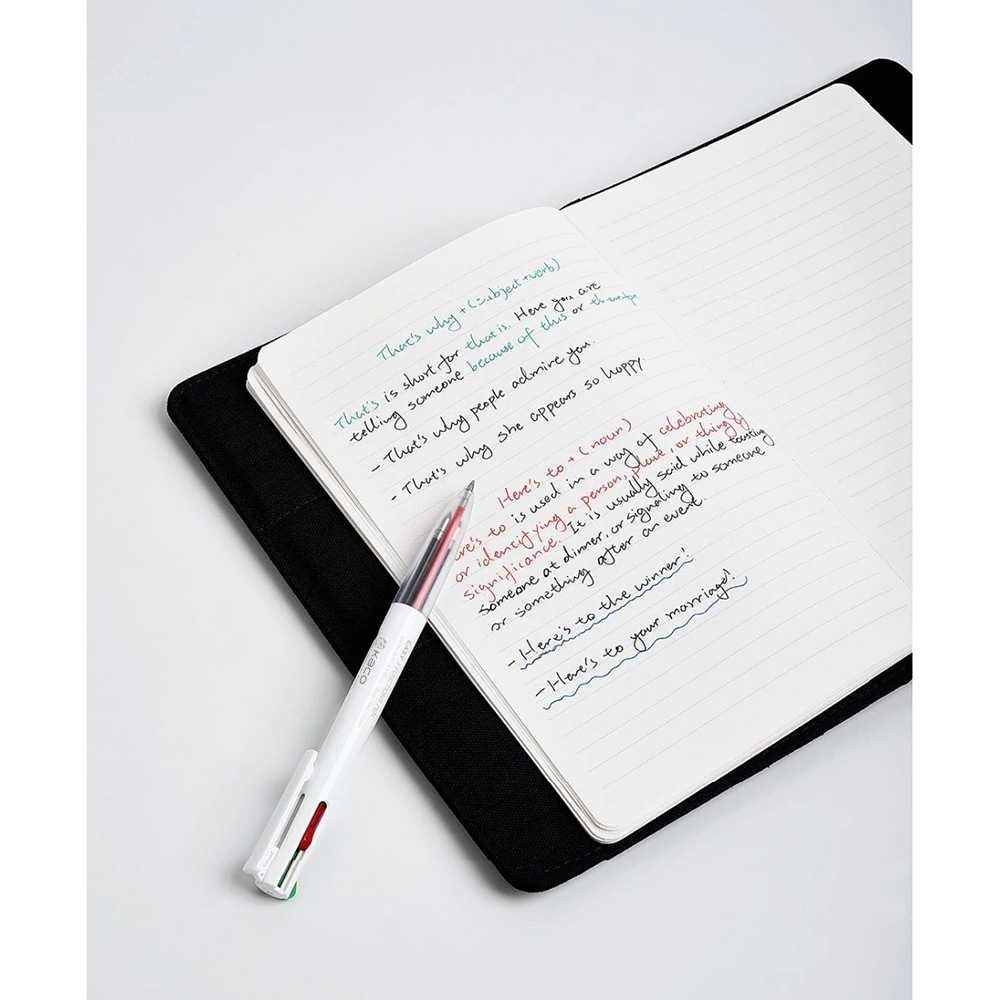 That's why + (subject + verb)
That's is short for that is. Here you are
telling someone because of this or
- That's why people admire you.
- That's why she appears so happy
Here's to + (noun)
ere's to is used in a way of celebrating
or identifying a person, place, or thing of
significance. It is usually said while toasting
someone at dinner, or signaling to someone
or something after an event.
- Here's to the winner!
- Here's to your marriage!
kaco